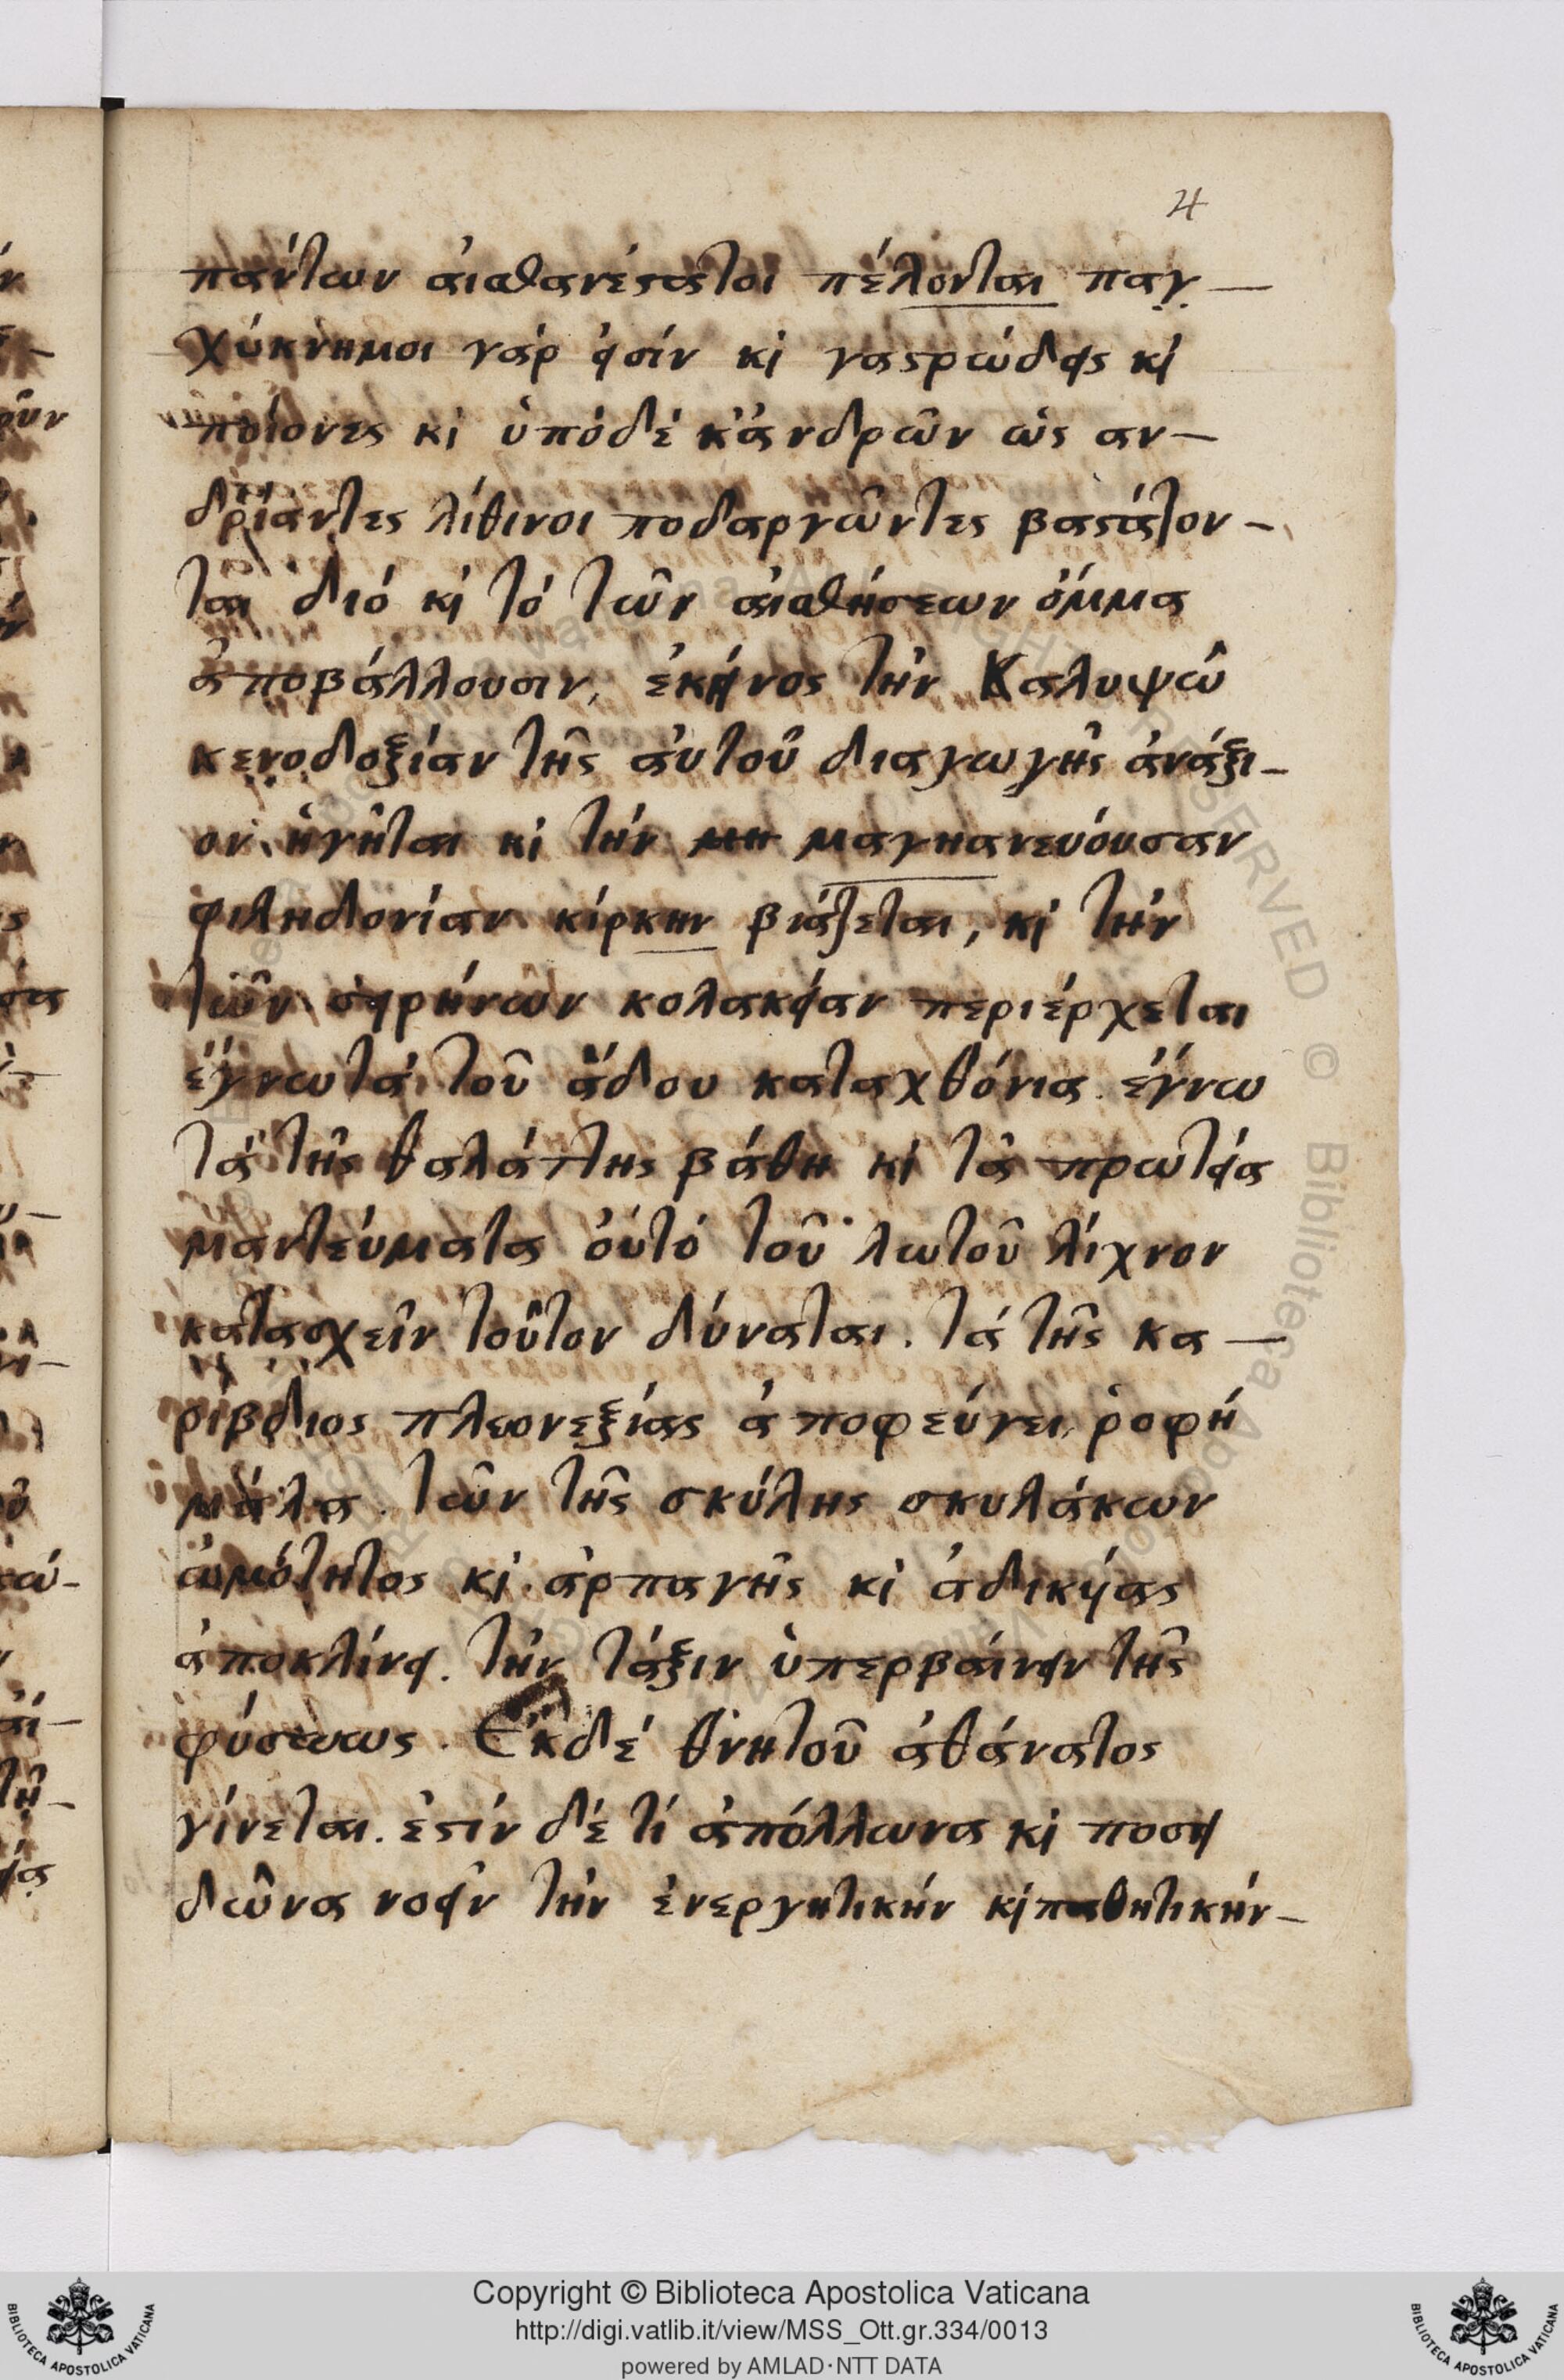 4
πάντων ἀισθανέστατοι πέλονται παγ—
χύκνημοι γάρ εἰσίν κὶ γαστρώδεις κὶ
πίονες κὶ ὑπόδέ κ'ἀνδρῶν ὡς αν—
δρίαντες λίθινοι ποδαργῶντες βαστάζον—
ται διό κὶ τό τῶν αἰσθήσεων ὄμμα
ἀποβάλλουσιν, ἐκεῖνος τὴν Καλυψῶ
κενοδοξίαν τῆς ἀυτοῦ διαγωγῆς ἀνάξι—
ον ἡγεῖται κὶ τήν μαγγανευόυσαν
φιληδονίαν κίρκην βιάζεται, κὶ τήν
τῶν σειρήνων κολακείαν περιέρχεται
ἔγνωτά τοῦ ἅδου καταχθόνια. ἔγνω
τά τῆς θαλάττης βάθη κὶ τὰ πρωτεία
μαντεύματα ὀύτό τοῦ λωτοῦ λίχνον
κατασχεῖν τοῦτον δύναται. τά τῆς κα—
ρίβδιος πλεονεξίας ἀποφεύγει, ῥοφή
μάλα. τῶν τῆς σκύλης σκυλάκων
ὠμότητος κὶ ἁρπαγῆς κὶ ἀδικείας
ἀποκλίνει. τὴν τάξιν ὑπερβαίνειν τῆς
φύσεως. Ἐκδέ θνητοῦ ἀθάνατος
γίνεται. ἐστίν δέ τί ἀπόλλωνα κὶ ποσει
δῶνα νοεῖν τὴν ἐνεργητικήν κὶ παθητικήν—
Copyright © Biblioteca Apostolica Vaticana
http://digi.vatlib.it/view/MSS_Ott.gr.334/0013
powered by AMLAD·NTT DATA
BIBLIOTECA APOSTOLICA VATICANA
BIBLIOTECA APOSTOLICA VATICANA